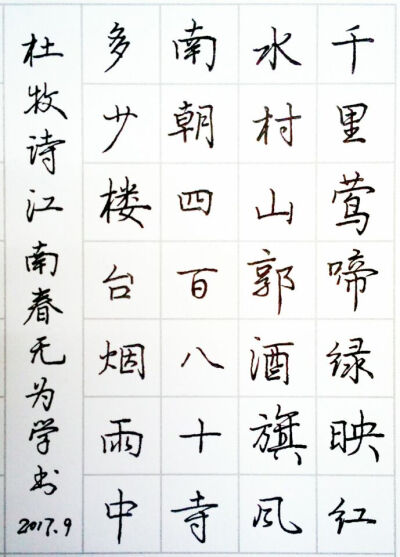 千里莺啼绿映红
水村山郭酒旗风
南朝四百八十寺
多少楼台烟雨中
杜牧诗江南春无为学书
2017.9